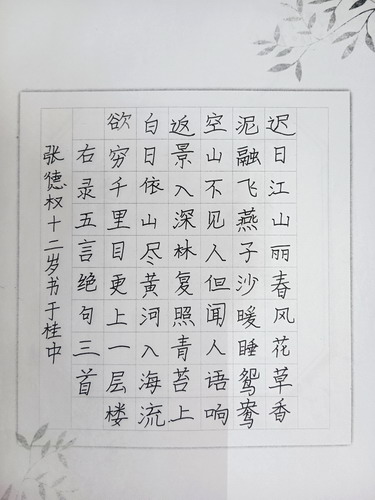 迟日江山丽春风花草香
泥融飞燕子沙暖睡鸳鸯
空山不见人但闻人语响
返景入深林复照青苔上
白日依山尽黄河入海流
欲穷千里目更上一层楼
右录五言绝句三首
张德权十二岁书于桂中